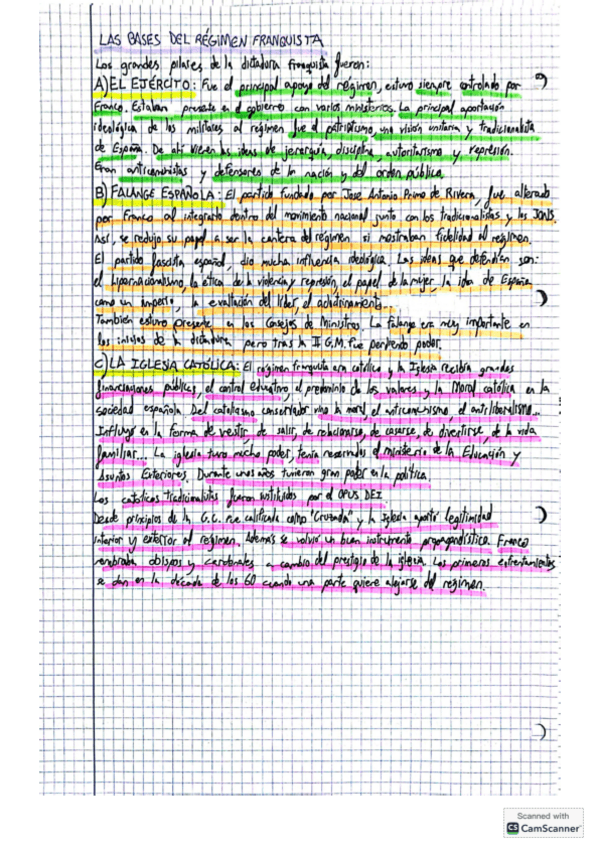 LAS BASES DEL RÉGIMEN FRANQUISTA
Los grandes pilares de la dictadura franquista fueron:
A) EL EJÉRCITO: Fue el principal apoyo del régimen, estuvo siempre controlado por
Franco. Estaban presente en el gobierno con varios ministerios. La principal aportación
ideológica de los militares al régimen fue el patriotismo, una visión unitaria y tradicionalista
de España. De ahí vienen las ideas de jerarquía, disciplina, autoritarismo y represión.
Eran anticomunistas y defensores de la nación y del orden público.
B) FALANGE ESPAÑOLA: El partido fundado por Jose Antonio Primo de Rivera, fue alterado
por Franco al integrarlo dentro del movimiento nacional junto con los tradicionalistas y las JONS.
Así, se redujo su papel a ser la cantera del régimen si mostraban fidelidad al régimen.
El partido fascista español, dio mucha influencia ideológica. Las ideas que defendían son:
el hipernacionalismo, la ética de la violencia y represión, el papel de la mujer, la idea de España
como un imperio, la exaltación del líder, el adoctrinamiento...
También estuvo presente en los Consejos de Ministros. La falange era muy importante en
los inicios de la dictadura pero tras la II G.M. fue perdiendo poder.
C) LA IGLESIA CATÓLICA: El régimen franquista era católico y la Iglesia recibía grandes
financiaciones públicas, el control educativo, el predominio de los valores y la moral católica en la
sociedad española. Del catolicismo conservador vino la moral, el anticomunismo, el antiliberalismo...
Influyó en la forma de vestir, de salir, de relacionarse, de casarse, de divertirse, de la vida
familiar... La iglesia tuvo mucho poder, tenía reservados el ministerio de la Educación y
Asuntos Exteriores. Durante unos años tuvieron gran poder en la política.
Los católicos tradicionalistas fueron sustituidos por el OPUS DEI.
Desde principios de la G.C. fue calificada como "Cruzada" y la Iglesia aportó legitimidad
interior y exterior al régimen. Además se volvió un buen instrumento propagandístico. Franco
nombraba obispos y cardenales a cambio del prestigio de la iglesia. Los primeros enfrentamientos
se dan en la década de los 60 cuando una parte quiere alejarse del régimen.
Scanned with
CS CamScanner